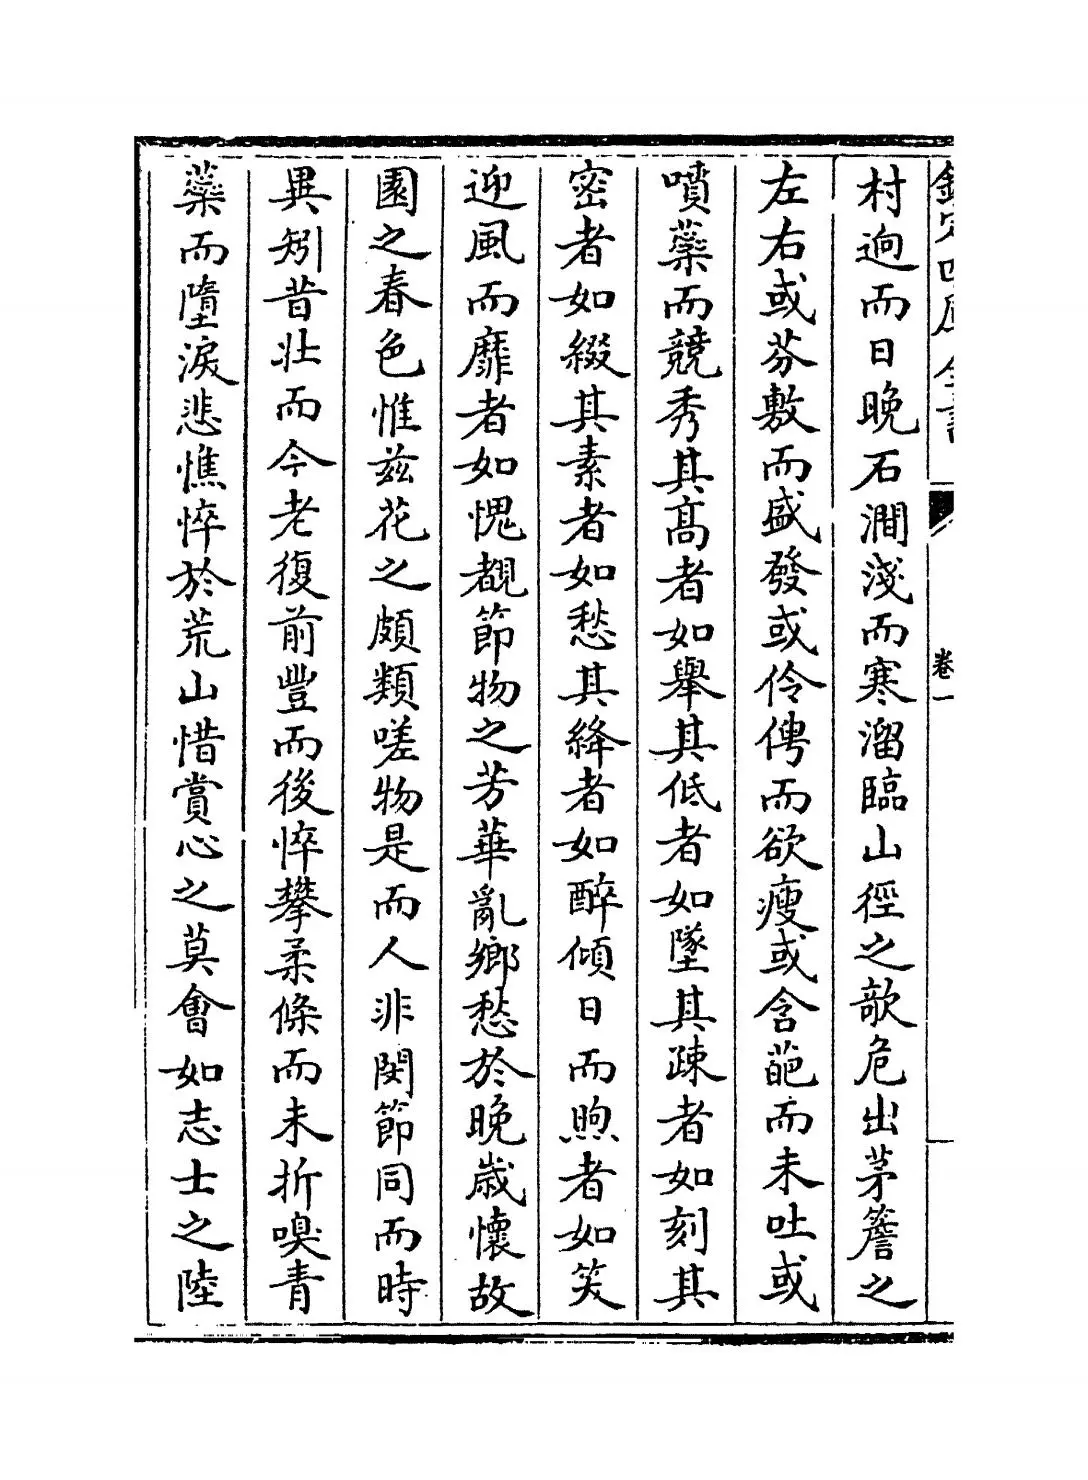 欽定四庫全書
卷一
村逈而日晚石澗淺而寒溜臨山徑之欹危出茅簷之
左右或芬敷而盛發或伶俜而欲瘦或含葩而未吐或
噴蘂而競秀其髙者如舉其低者如墜其疎者如刻其
密者如綴其素者如愁其絳者如醉傾日而煦者如笑
迎風而靡者如愧覩節物之芳華亂鄉愁於晚歳懷故
園之春色惟兹花之頗類嗟物是而人非閔節同而時
異矧昔壯而今老復前豐而後悴攀柔條而未折嗅青
蘂而墮淚悲憔悴於荒山惜賞心之莫會如志士之陸